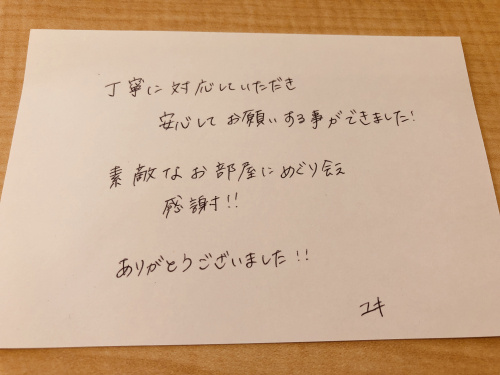 丁寧に対応していただき
安心してお願いする事ができました!
素敵なお部屋にめぐり会え
感謝!!
ありがとうございました!!
ユキ